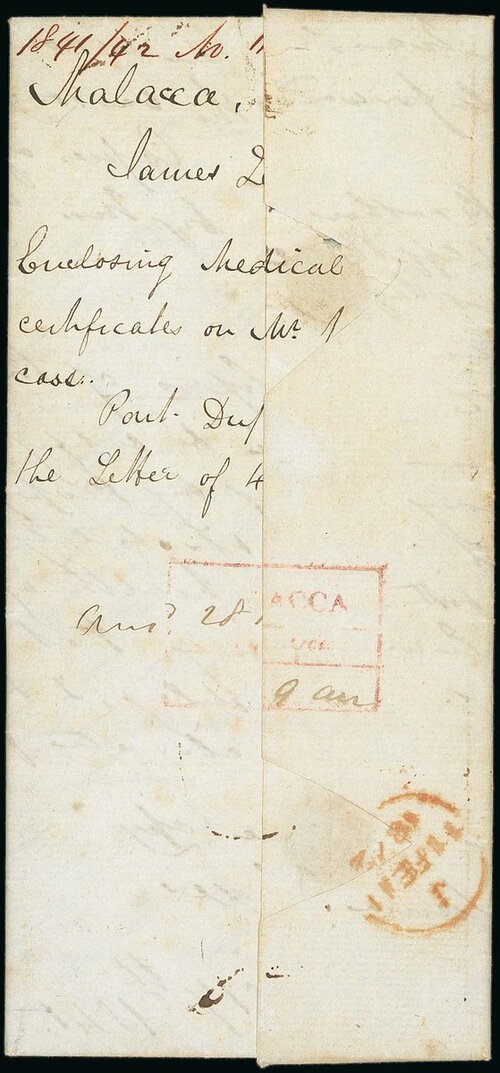 1841/42 No.
Malacca,
James
Enclosing Medical
certificates on Mr.
case.
Pont. Dup
the Letter of 4
ACCA
ansd. 28
9 am